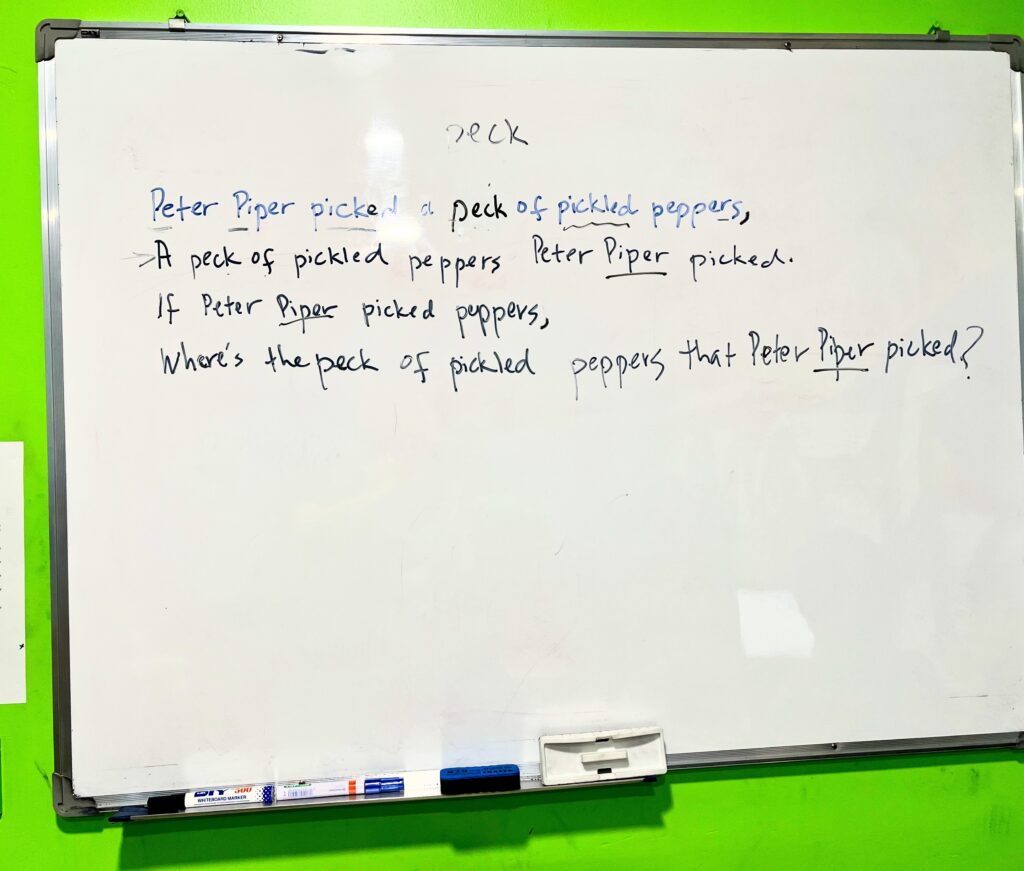 peck
Peter Piper picked a peck of pickled peppers,
A peck of pickled peppers Peter Piper picked.
If Peter Piper picked peppers,
Where's the peck of pickled peppers that Peter Piper picked?
500
WHITEBOARD MARKER